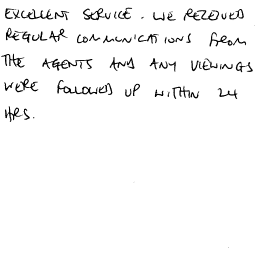 EXCELLENT SERVICE. WE RECEIVED
REGULAR COMMUNICATIONS FROM
THE AGENTS AND ANY VIEWINGS
WERE FOLLOWED UP WITHIN 24
HRS.